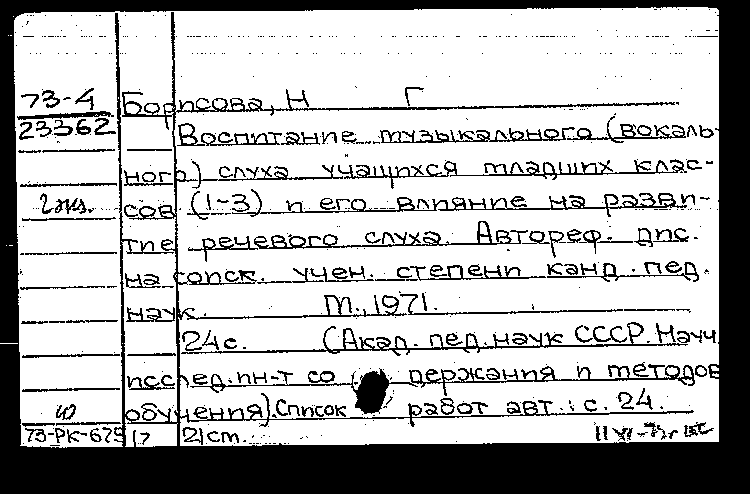 73-4 Борисова, Н Г
23362 Воспитание музыкального (вокаль-
ного) слуха учащихся младших клас-
2 экз. сов (1-3) и его влияние на разви-
тие речевого слуха. Автореф. дис.
на соиск. учен. степени канд. пед.
наук. М., 1971.
24 с. (Акад. пед. наук СССР. Научн
исслед. ин-т содержания и методов
ю обучения). Список работ авт.: с. 24.
73-РК-675 17 21 ст. 11 XI-73г